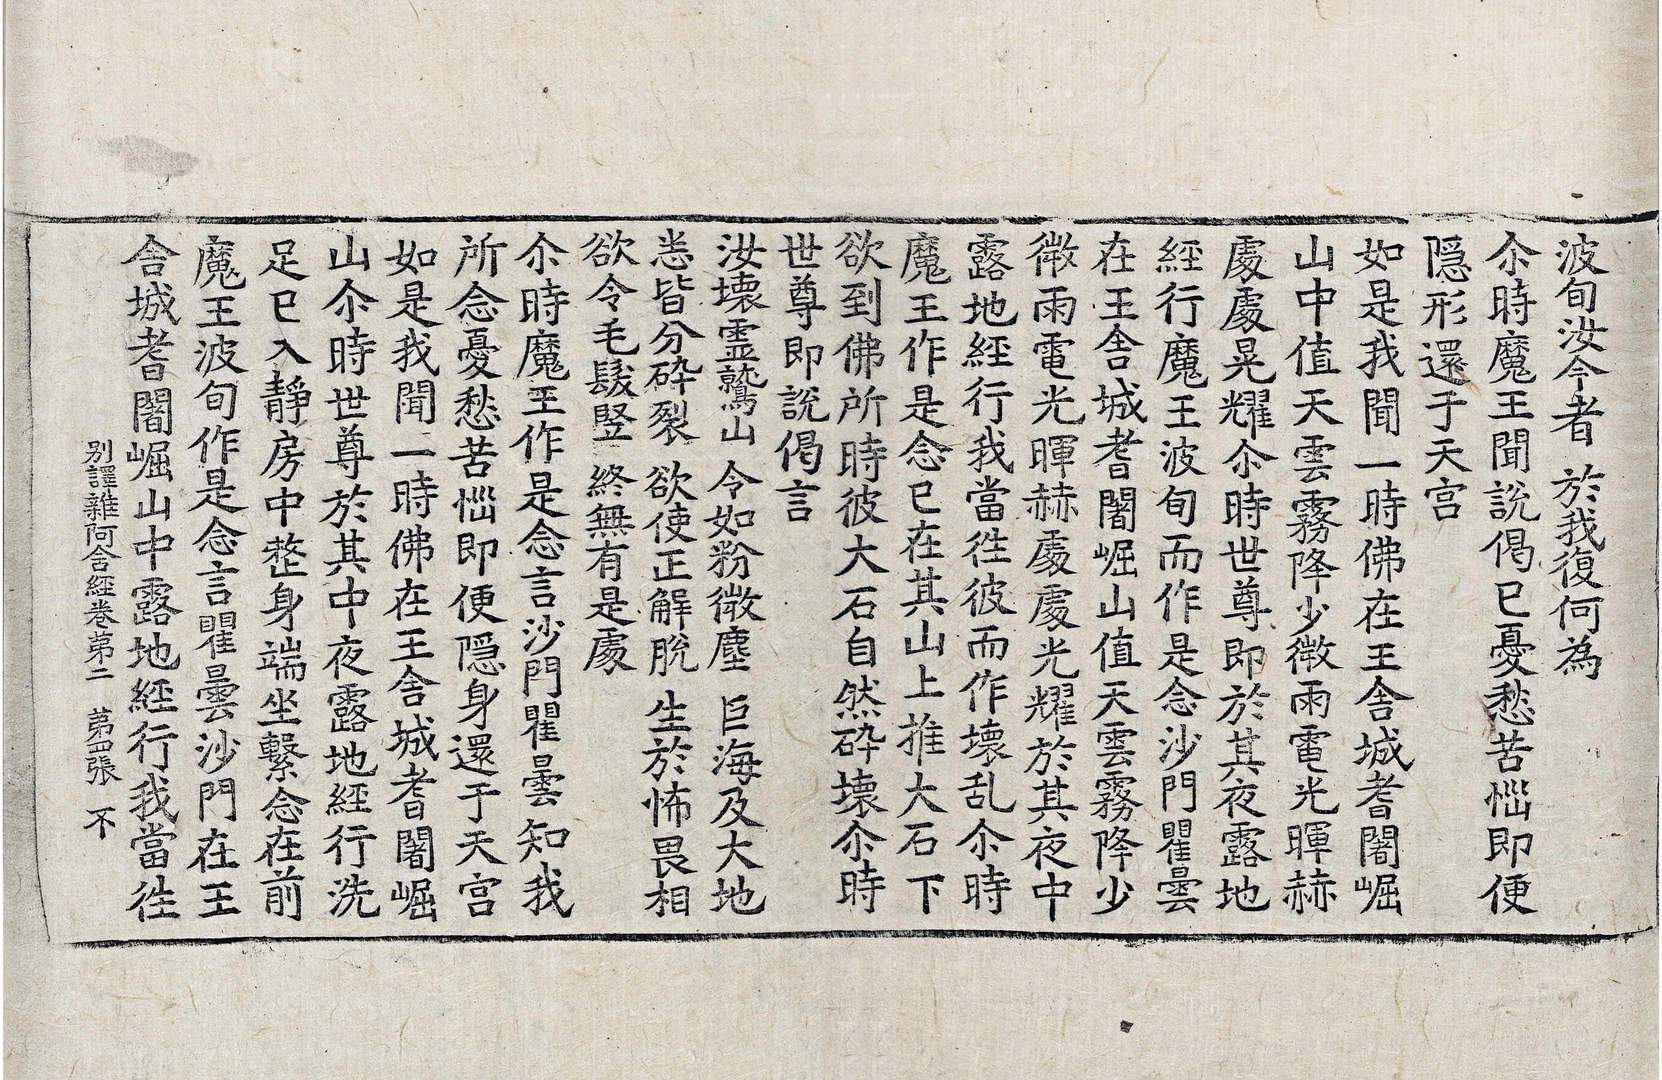 波旬汝今者　於我復何為
尒時魔王聞說偈已憂愁苦惱即便
隱形還于天宮
如是我聞一時佛在王舍城耆闍崛
山中值天雲霧降少微雨電光暉赫
處處晃耀尒時世尊即於其夜露地
經行魔王波旬而作是念沙門瞿曇
在王舍城耆闍崛山值天雲霧降少
微雨電光暉赫處處光耀於其夜中
露地經行我當徃彼而作壞乱尒時
魔王作是念已在其山上推大石下
欲到佛所時彼大石自然碎壞尒時
世尊即說偈言
汝壞靈鷲山　令如粉微塵　巨海及大地
悉皆分碎裂　欲使正解脫　生於怖畏相
欲令毛髮竪　終無有是處
尒時魔王作是念言沙門瞿曇知我
所念憂愁苦惱即便隱身還于天宮
如是我聞一時佛在王舍城耆闍崛
山尒時世尊於其中夜露地經行洗
足已入靜房中整身端坐繫念在前
魔王波旬作是念言瞿曇沙門在王
舍城耆闍崛山中露地經行我當徃
別譯雜阿含經卷第二　第四張　不